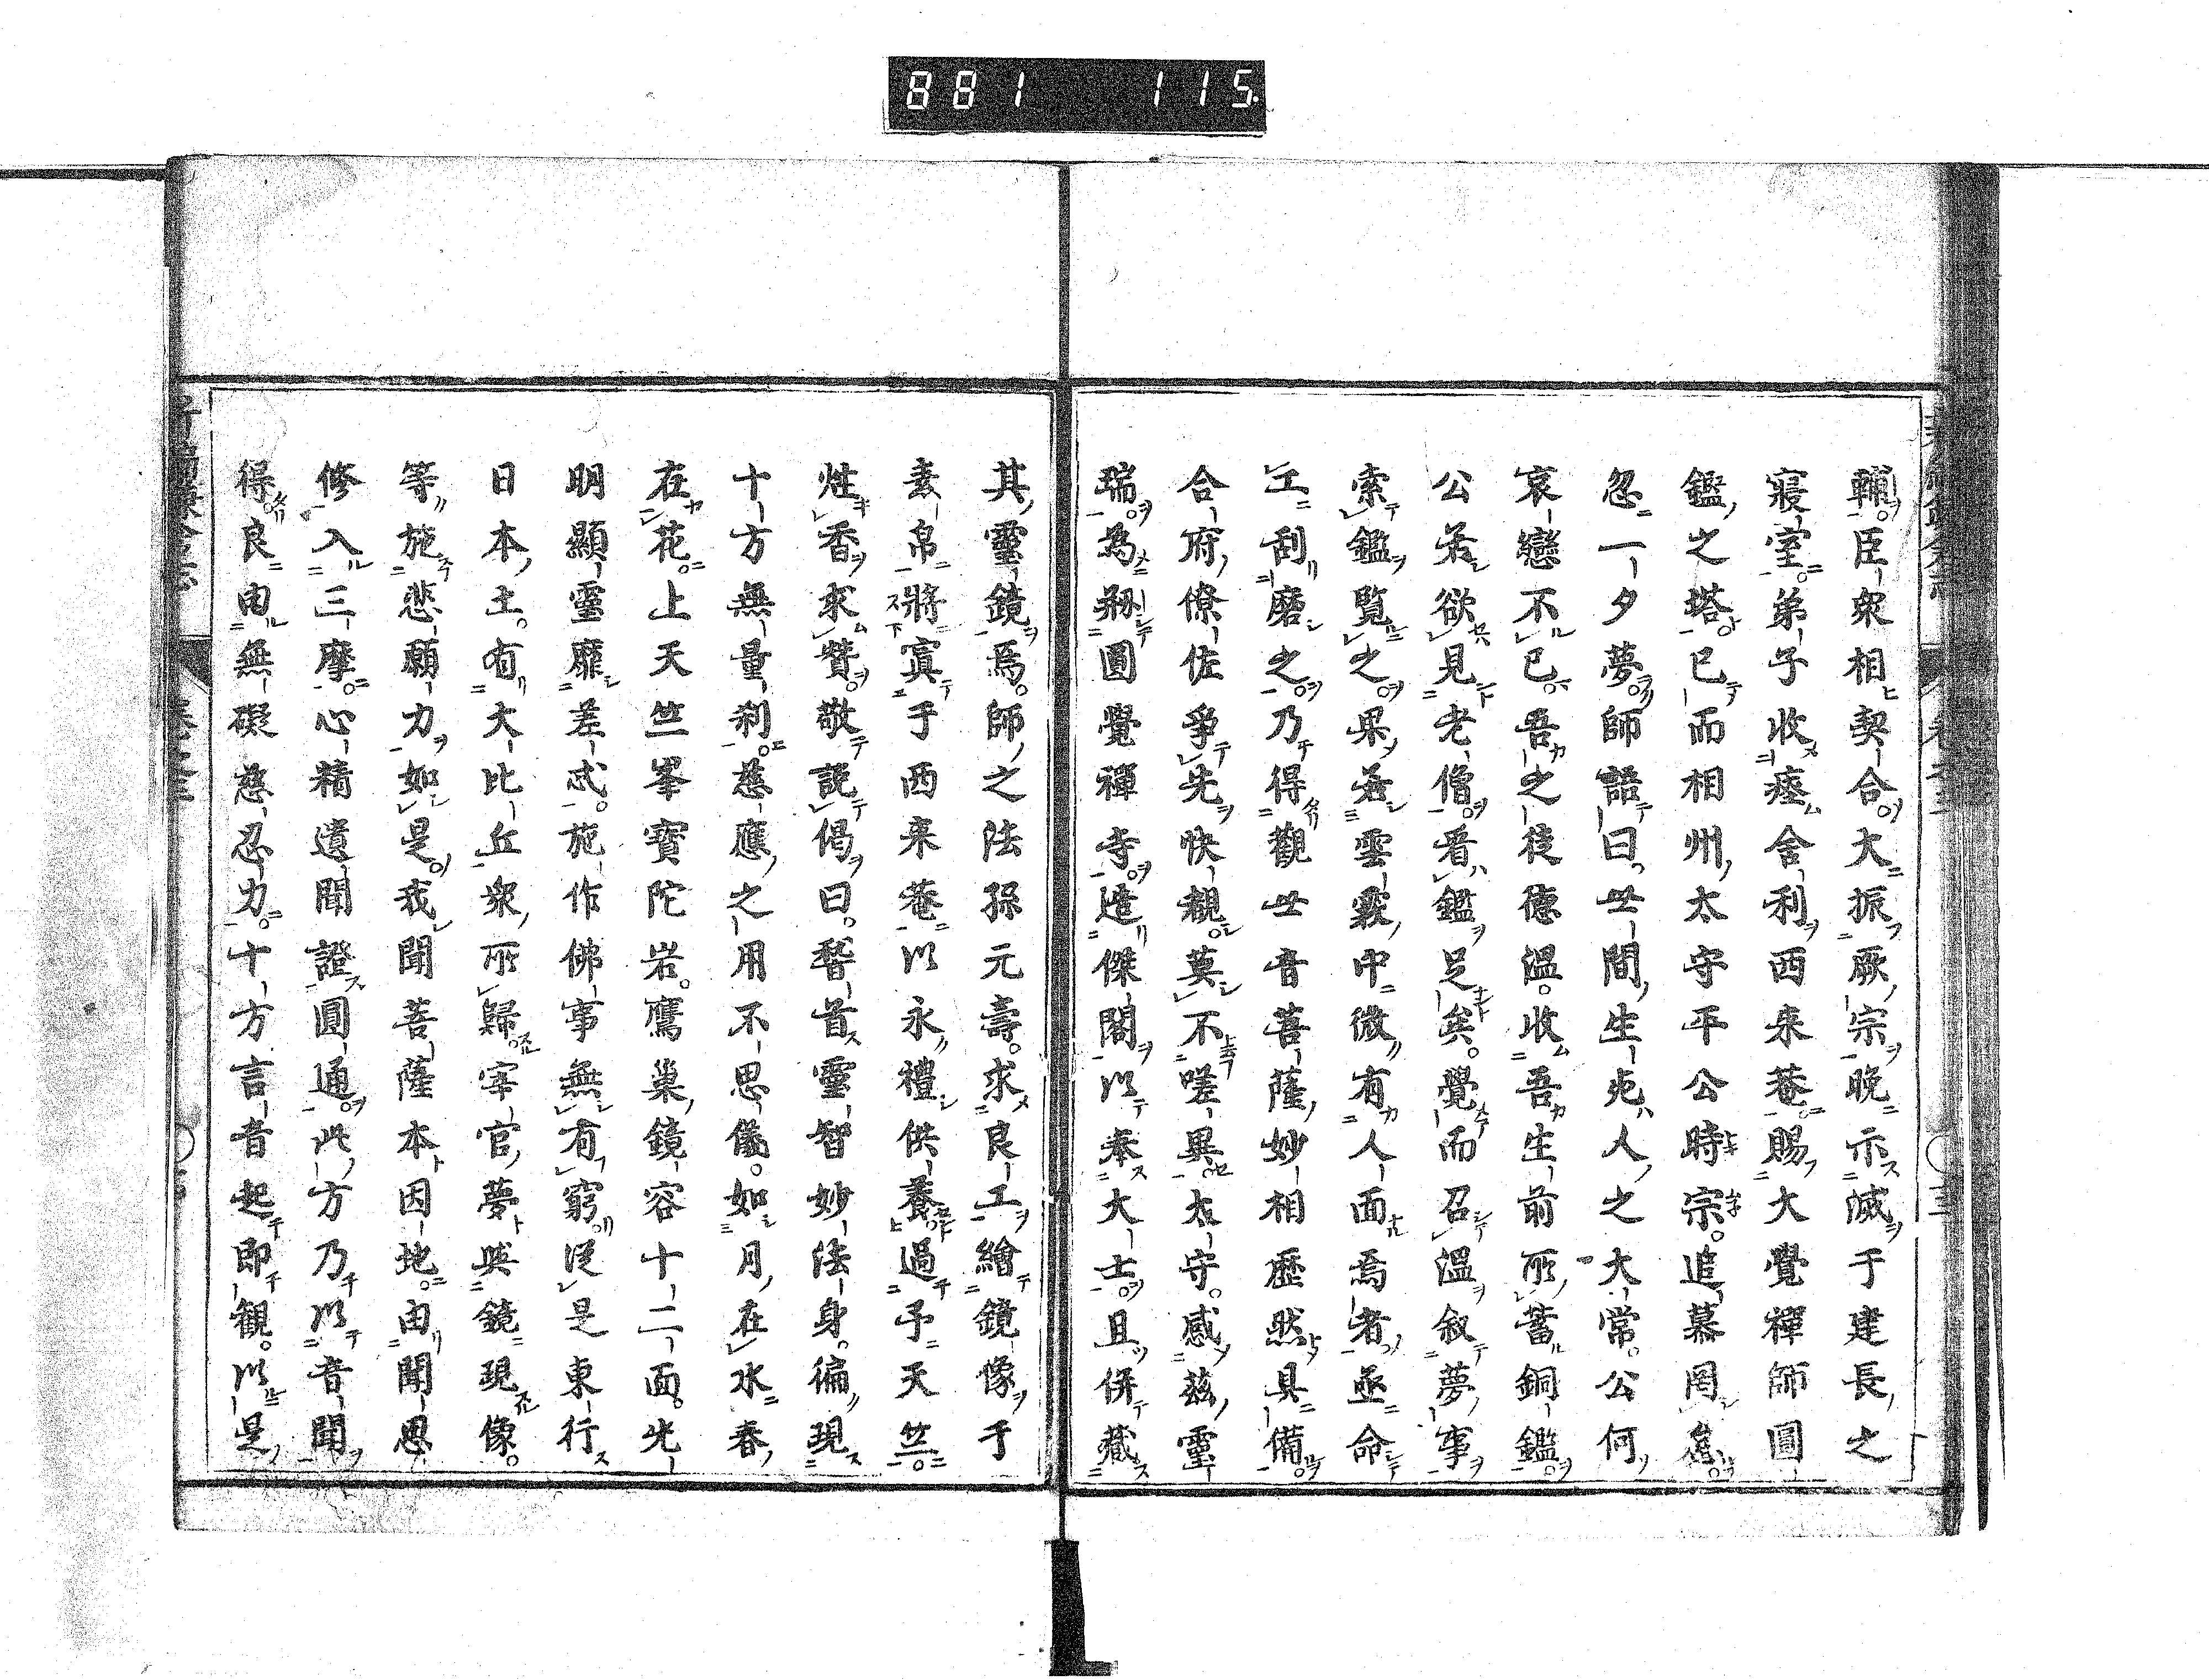 881 115
輔臣衆相契合大振厥宗晩示滅于建長之
寢室弟子收瘞舍利西来菴賜大覺禪師圓
鑑之塔已而相州太守平公時宗追慕罔怠
忽一夕夢師語曰世間生死人之大常公何
哀戀不已吾之徒德温收吾生前所蓄銅鑑
公若欲見老僧看鑑足矣覺而召温叙夢事
索鑑覧之果若雲霧中微有人面焉者亟命
工刮磨之乃得觀世音菩薩妙相歷然具備
合府僚佐爭先快覩莫不嗟異太守感茲靈
瑞為剏圓覺禪寺造傑閣以奉大士且併藏
其靈鏡焉師之法孫元壽求良工繪鏡像于
素帛將寘于西来菴以永禮供養過予天竺
炷香求贊敬説偈曰稽首靈智妙法身徧現
十方無量刹慈應之用不思儀如月在水春
在花上天竺峯寶陀岩鷹巢鏡容十二面光
明顯靈靡差忒施作佛事無有窮泛是東行
日本主有大比丘衆所歸宰官夢與鏡現像
等施悲願力如是我聞菩薩本因地由聞思
修入三摩心精遺聞證圓通此方乃以音聞
得良由無礙慈忍力十方言音起即觀以是